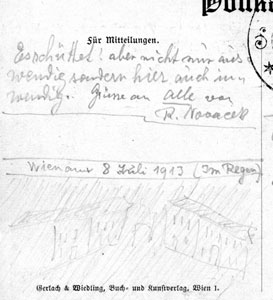 Für Mitteilungen.
Es schüttet! aber nicht nur aus
wendig sondern hier auch in
wendig. Grüsse an alle von
R. Novacek
Wien am 8 Juli 1913 (Im Regen)
Gerlach & Wiedling, Buch- und Kunstverlag, Wien I.